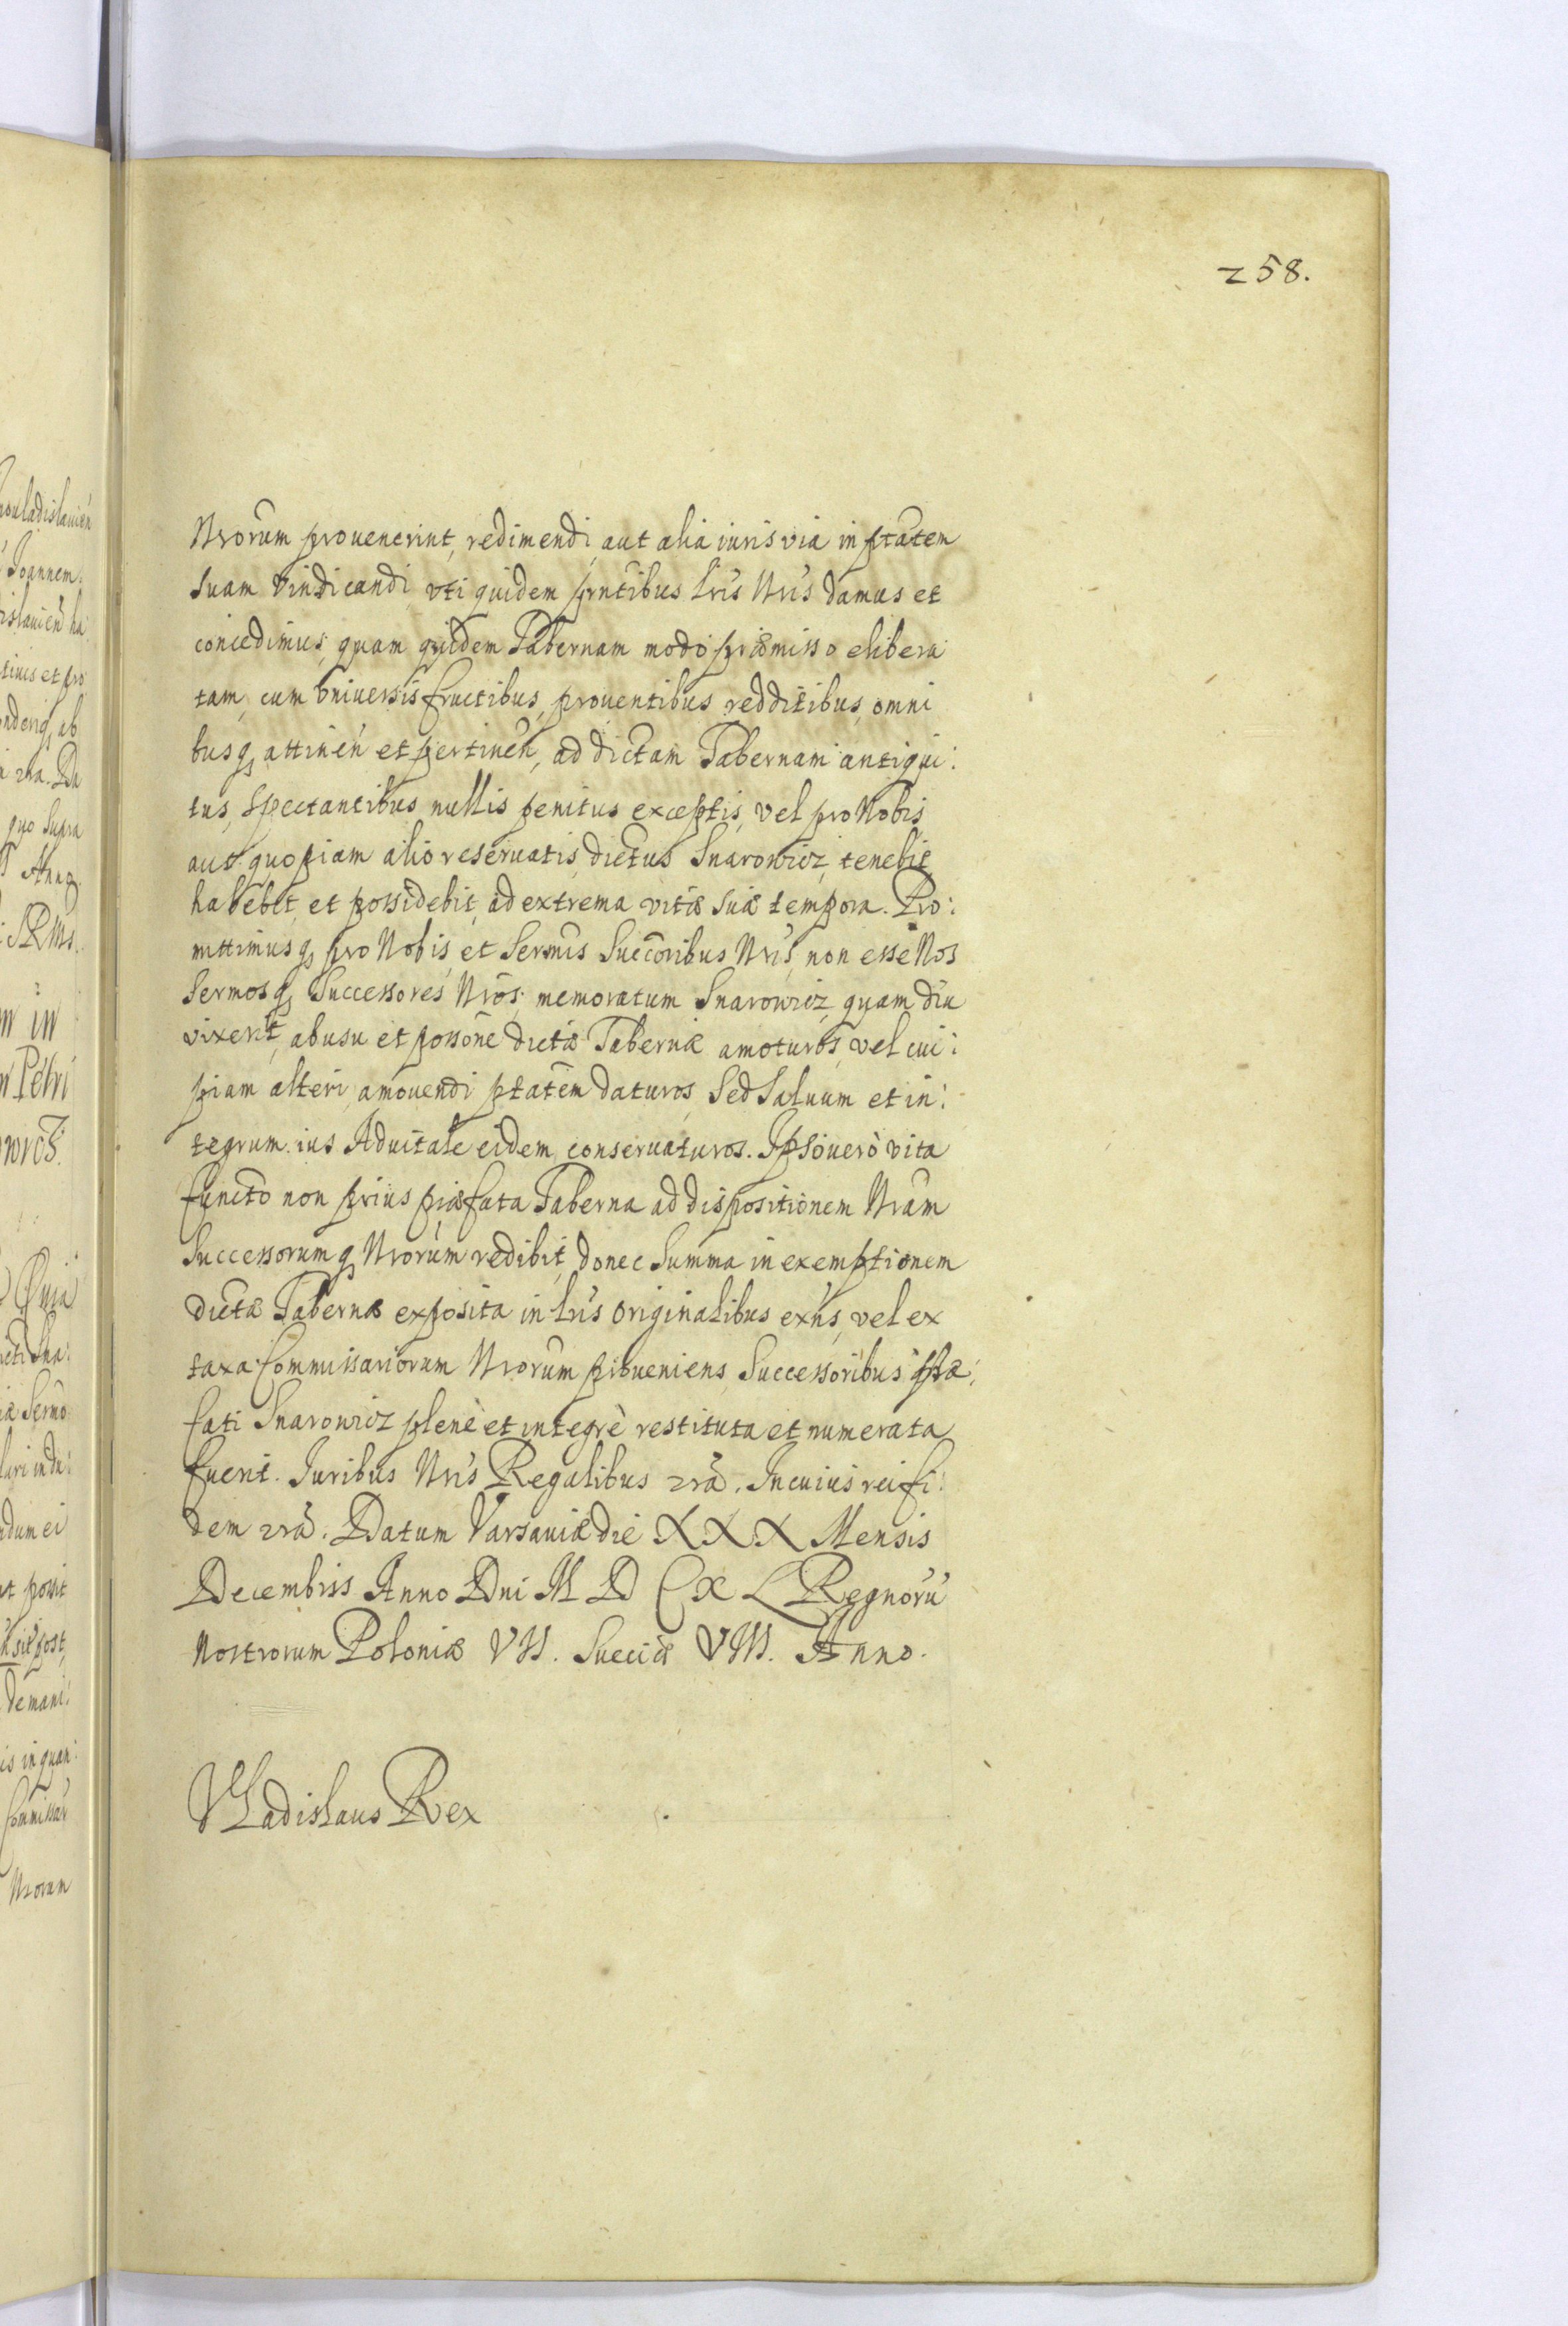 258.
Nrorum prouenerint, redimendi aut alia iuris via in ptãtem
suam vindicandi vti quidem pñtibus Lris Nris damus et
concedimus, quam quidem Tabernam modo præmisso elibera
tam, cum vniuersis fructibus, prouentibus redditibus, omni
busq, attineñ et pertineñ, ad dictam Tabernam antiqui:
tus, spectantibus nullis penitus exceptis, vel pro Nobis
aut quopiam alio reseruatis, dictus Snarowicz, tenebit
habebit, et possidebit, ad extrema vitæ suæ tempora. Pro:
mittimusq, pro Nobis, et Sermis Succoribus Nris, non esse Nos
Sermosq, Successores Nros, memoratum Snarowicz, quam diu
vixerit, ab usu et possone dictæ Tabernæ amoturos, vel cui:
piam alteri, amouendi ptãtem daturos, Sed Saluum et in:
tegrum ius Aduitale eidem, conseruaturos. Ipso uerò vita
functo non prius præfata Taberna ad dispositionem Nram
Successorumq, Nrorum redibit, donec Summa in exemptionem
dictæ Tabernæ exposita in Lris originalibus exñs, vel ex
taxa Commissariorum Nrorum proueniens, Successoribus præ:
fati Snarowicz plenè et integrè restituta et numerata
fuerit. Iuribus Nris Regalibus 2rã. In cuius rei fi:
dem 2rã. Datum Varsauiæ die XXX Mensis
Decembris Anno Dni M D C X L Regnorũ
Nostrorum Poloniæ VIII. Sueciæ VIIII. Anno.
VLadislaus Rex
Joannem
et pro
quo supra
in
Petri
posit
Nrorum